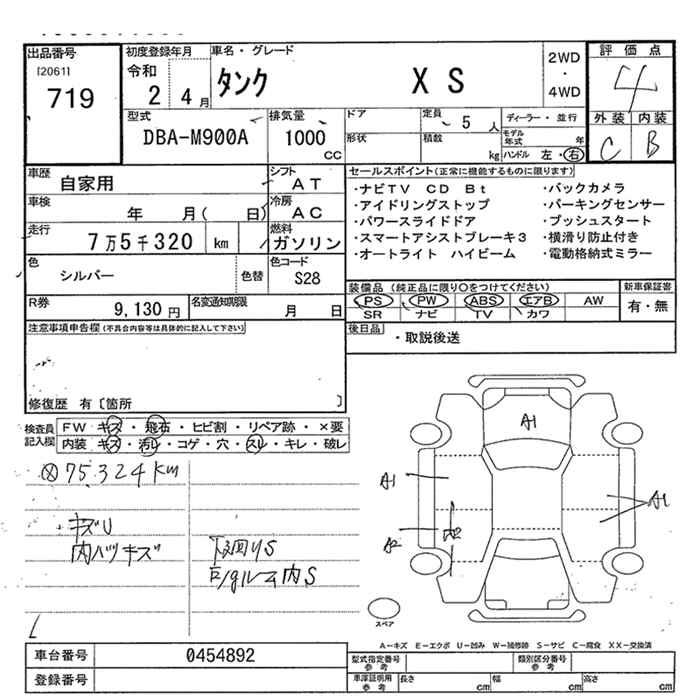 出品番号
[2061]
719
初度登録年月
令和
2 4月
車名・グレード
タンク X S
2WD
・
4WD
評価点
4
外装 内装
C B
型式
DBA-M900A
排気量
1000
CC
ドア
形状
定員
5 人
積数
kg
ディーラー・並行
モデル年式 年
ハンドル 左・右
車歴
自家用
シフト
AT
車検
年 月( 日)
冷房
AC
走行
7万5千320 km
燃料
ガソリン
色
シルバー
色替
色コード
S28
R券
9,130円
名変通知期限
月 日
セールスポイント(正常に機能するものに限ります)
・ナビTV CD Bt
・アイドリングストップ
・パワースライドドア
・スマートアシストブレーキ3
・オートライト ハイビーム
・バックカメラ
・パーキングセンサー
・プッシュスタート
・横滑り防止付き
・電動格納式ミラー
装備品(純正品に限り○をつけてください)
PS PW ABS エアB AW
SR ナビ TV カワ
新車保証書
有・無
後日品
・取説後送
注意事項申告欄(不具合内容等は具体的に記入して下さい)
修復歴 有〔箇所 〕
検査員記入欄
FW キズ・飛石・ヒビ割・リペア跡・×要
内装 キズ・汚レ・コゲ・穴・スレ・キレ・破レ
75,324km
キズU
内ハツキズ
下回りS
内S
A1
A1
A1
A2
A2
スペア
A-キズ E-エクボ U-凹み W-補修跡 S-サビ C-腐食 XX-交換済
車台番号
0454892
登録番号
型式指定番号
参考
類別区分番号
参考
車庫証明用
参考
長さ cm
幅 cm
高さ cm